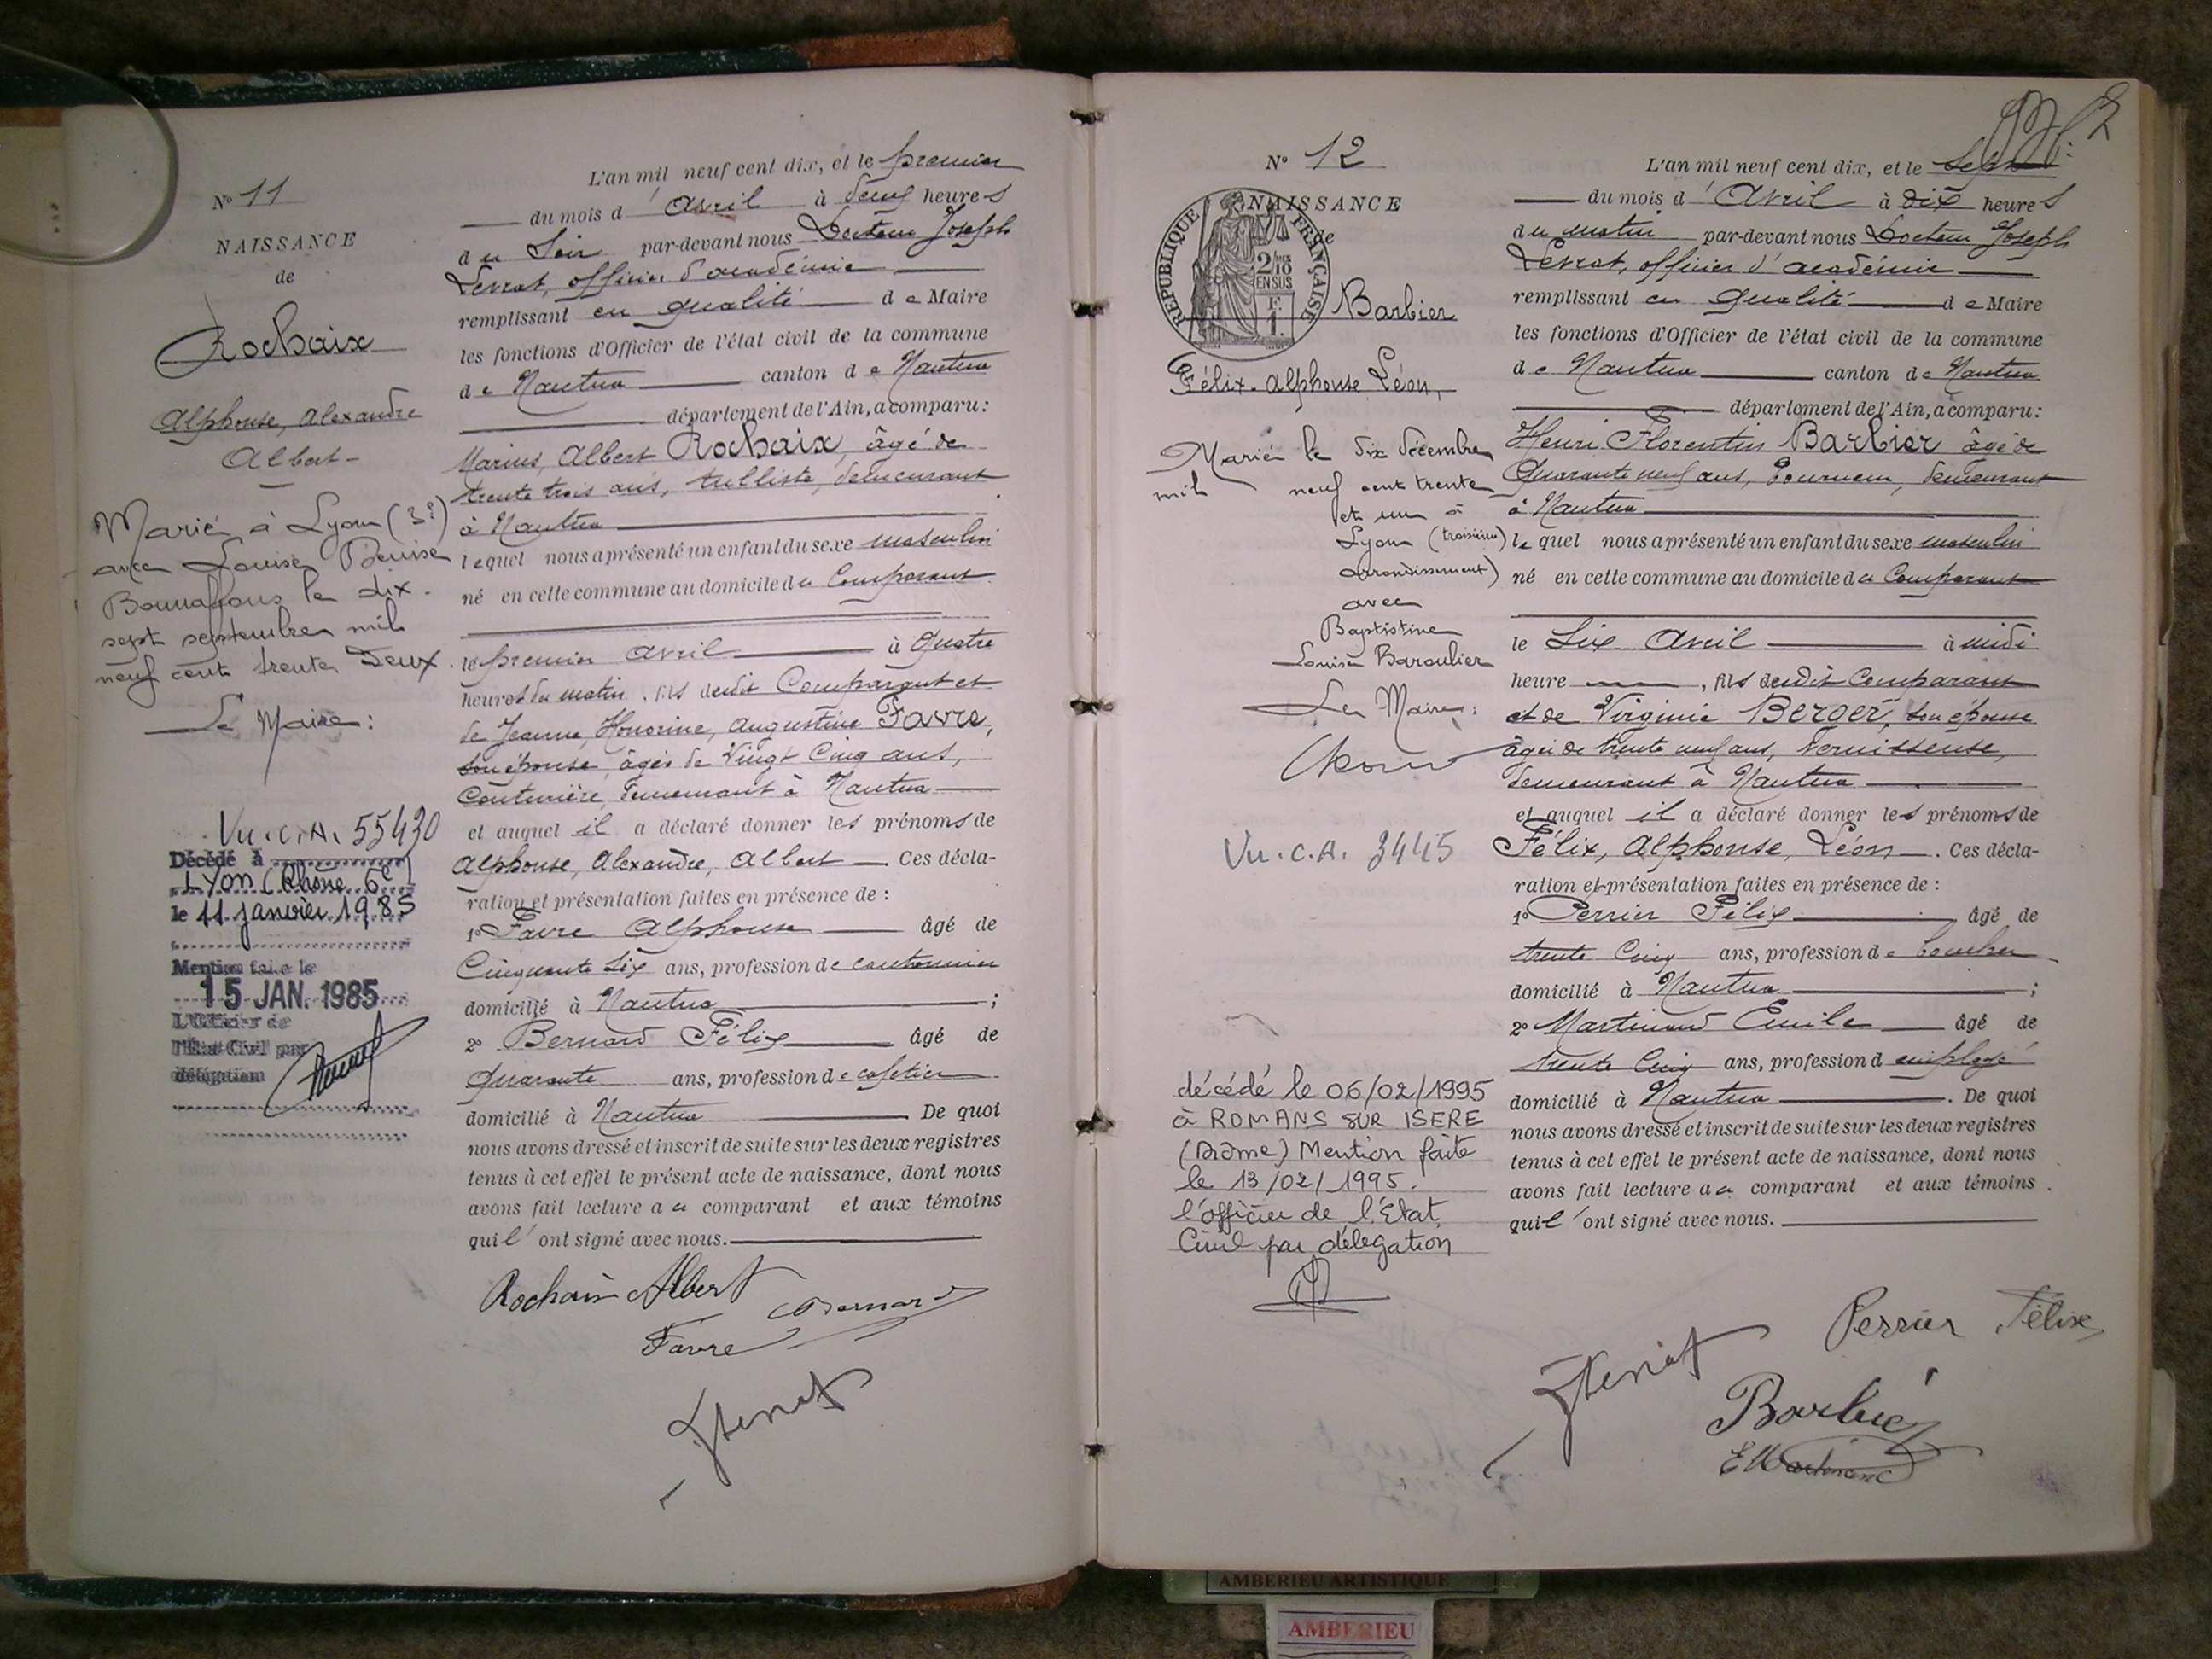 N° 11
NAISSANCE
de
Rochaix
Alphonse, Alexandre
Albert
Marié à Lyon (3e)
avec Louise Denise
Bonnafous le dix-
sept septembre mil
neuf cent trente deux.
Le Maire:
Vu. C.A. 55430
Décédé à
LYON (Rhône 6e)
le 11 janvier 1985
Mention faite le
15 JAN. 1985
L'Officier de
l'État-Civil par
délégation
L'an mil neuf cent dix, et le premier
du mois d'Avril à neuf heures
du Soir par-devant nous Docteur Joseph
Levrat, officier d'académie
remplissant en qualité de Maire
les fonctions d'Officier de l'état civil de la commune
de Nantua canton de Nantua
département de l'Ain, a comparu:
Marius, Albert Rochaix, âgé de
trente trois ans, tulliste, demeurant
à Nantua
lequel nous a présenté un enfant du sexe masculin
né en cette commune au domicile du Comparant
le premier avril à Quatre
heures du matin, fils dudit Comparant et
de Jeanne, Honorine, Augustine Favre,
son épouse, âgée de Vingt Cinq ans,
Couturière, demeurant à Nantua
et auquel il a déclaré donner les prénoms de
Alphonse, Alexandre, Albert. Ces décla-
ration et présentation faites en présence de :
1° Favre Alphonse âgé de
Cinquante Six ans, profession de cantonnier
domicilié à Nantua ;
2° Bernard Félix âgé de
Quarante ans, profession de cafetier
domicilié à Nantua. De quoi
nous avons dressé et inscrit de suite sur les deux registres
tenus à cet effet le présent acte de naissance, dont nous
avons fait lecture au comparant et aux témoins
qui l'ont signé avec nous.
Rochaix Albert
Bernard
Favre
N° 12
NAISSANCE
de
REPUBLIQUE FRANÇAISE
2/10
EN SUS
Barbier
Félix-Alphonse Léon,
Marié le dix décembre
mil neuf cent trente
et un à
Lyon (troisième
arrondissement)
avec
Baptistine
Louise Baroulier
Le Maire:
Vu. C.A. 3445
décédé le 06/02/1995
à ROMANS SUR ISERE
(Drôme) Mention faite
le 13/02/1995.
l'officier de l'Etat
Civil par délégation
L'an mil neuf cent dix, et le Sept
du mois d'Avril à dix heures
du matin par-devant nous Docteur Joseph
Levrat, officier d'académie
remplissant en qualité de Maire
les fonctions d'Officier de l'état civil de la commune
de Nantua canton de Nantua
département de l'Ain, a comparu:
Henri Florentin Barbier âgé de
Quarante neuf ans, Tourneur, demeurant
à Nantua
lequel nous a présenté un enfant du sexe masculin
né en cette commune au domicile du Comparant
le Six Avril à midi
heure, fils dudit Comparant
et de Virginie Berger, son épouse
âgée de trente neuf ans, vernisseuse,
demeurant à Nantua
et auquel il a déclaré donner les prénoms de
Félix, Alphonse, Léon. Ces décla-
ration et présentation faites en présence de :
1° Perrier Félix âgé de
trente Cinq ans, profession de boucher
domicilié à Nantua ;
2° Martinand Emile âgé de
trente Cinq ans, profession d'employé
domicilié à Nantua. De quoi
nous avons dressé et inscrit de suite sur les deux registres
tenus à cet effet le présent acte de naissance, dont nous
avons fait lecture au comparant et aux témoins
qui l'ont signé avec nous.
Perrier Félix
Barbier
E Martinand
AMBERIEU ARTISTIQUE
AMBERIEU